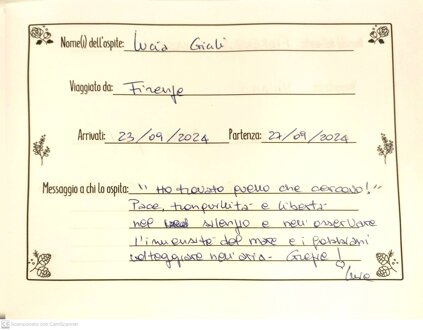 Nome(i) dell'ospite: Lucia Giali
Viaggiato da: Firenze
Arrivati: 23/09/2024 Partenza: 27/09/2024
Messaggio a chi la ospita: "Ho trovato quello che cercavo!"
Pace, tranquillità e libertà
nel silenzio e nell'osservare
l'immensità del mare e i gabbiani
volteggiare nell'aria. Grazie!
Scansionato con CamScanner